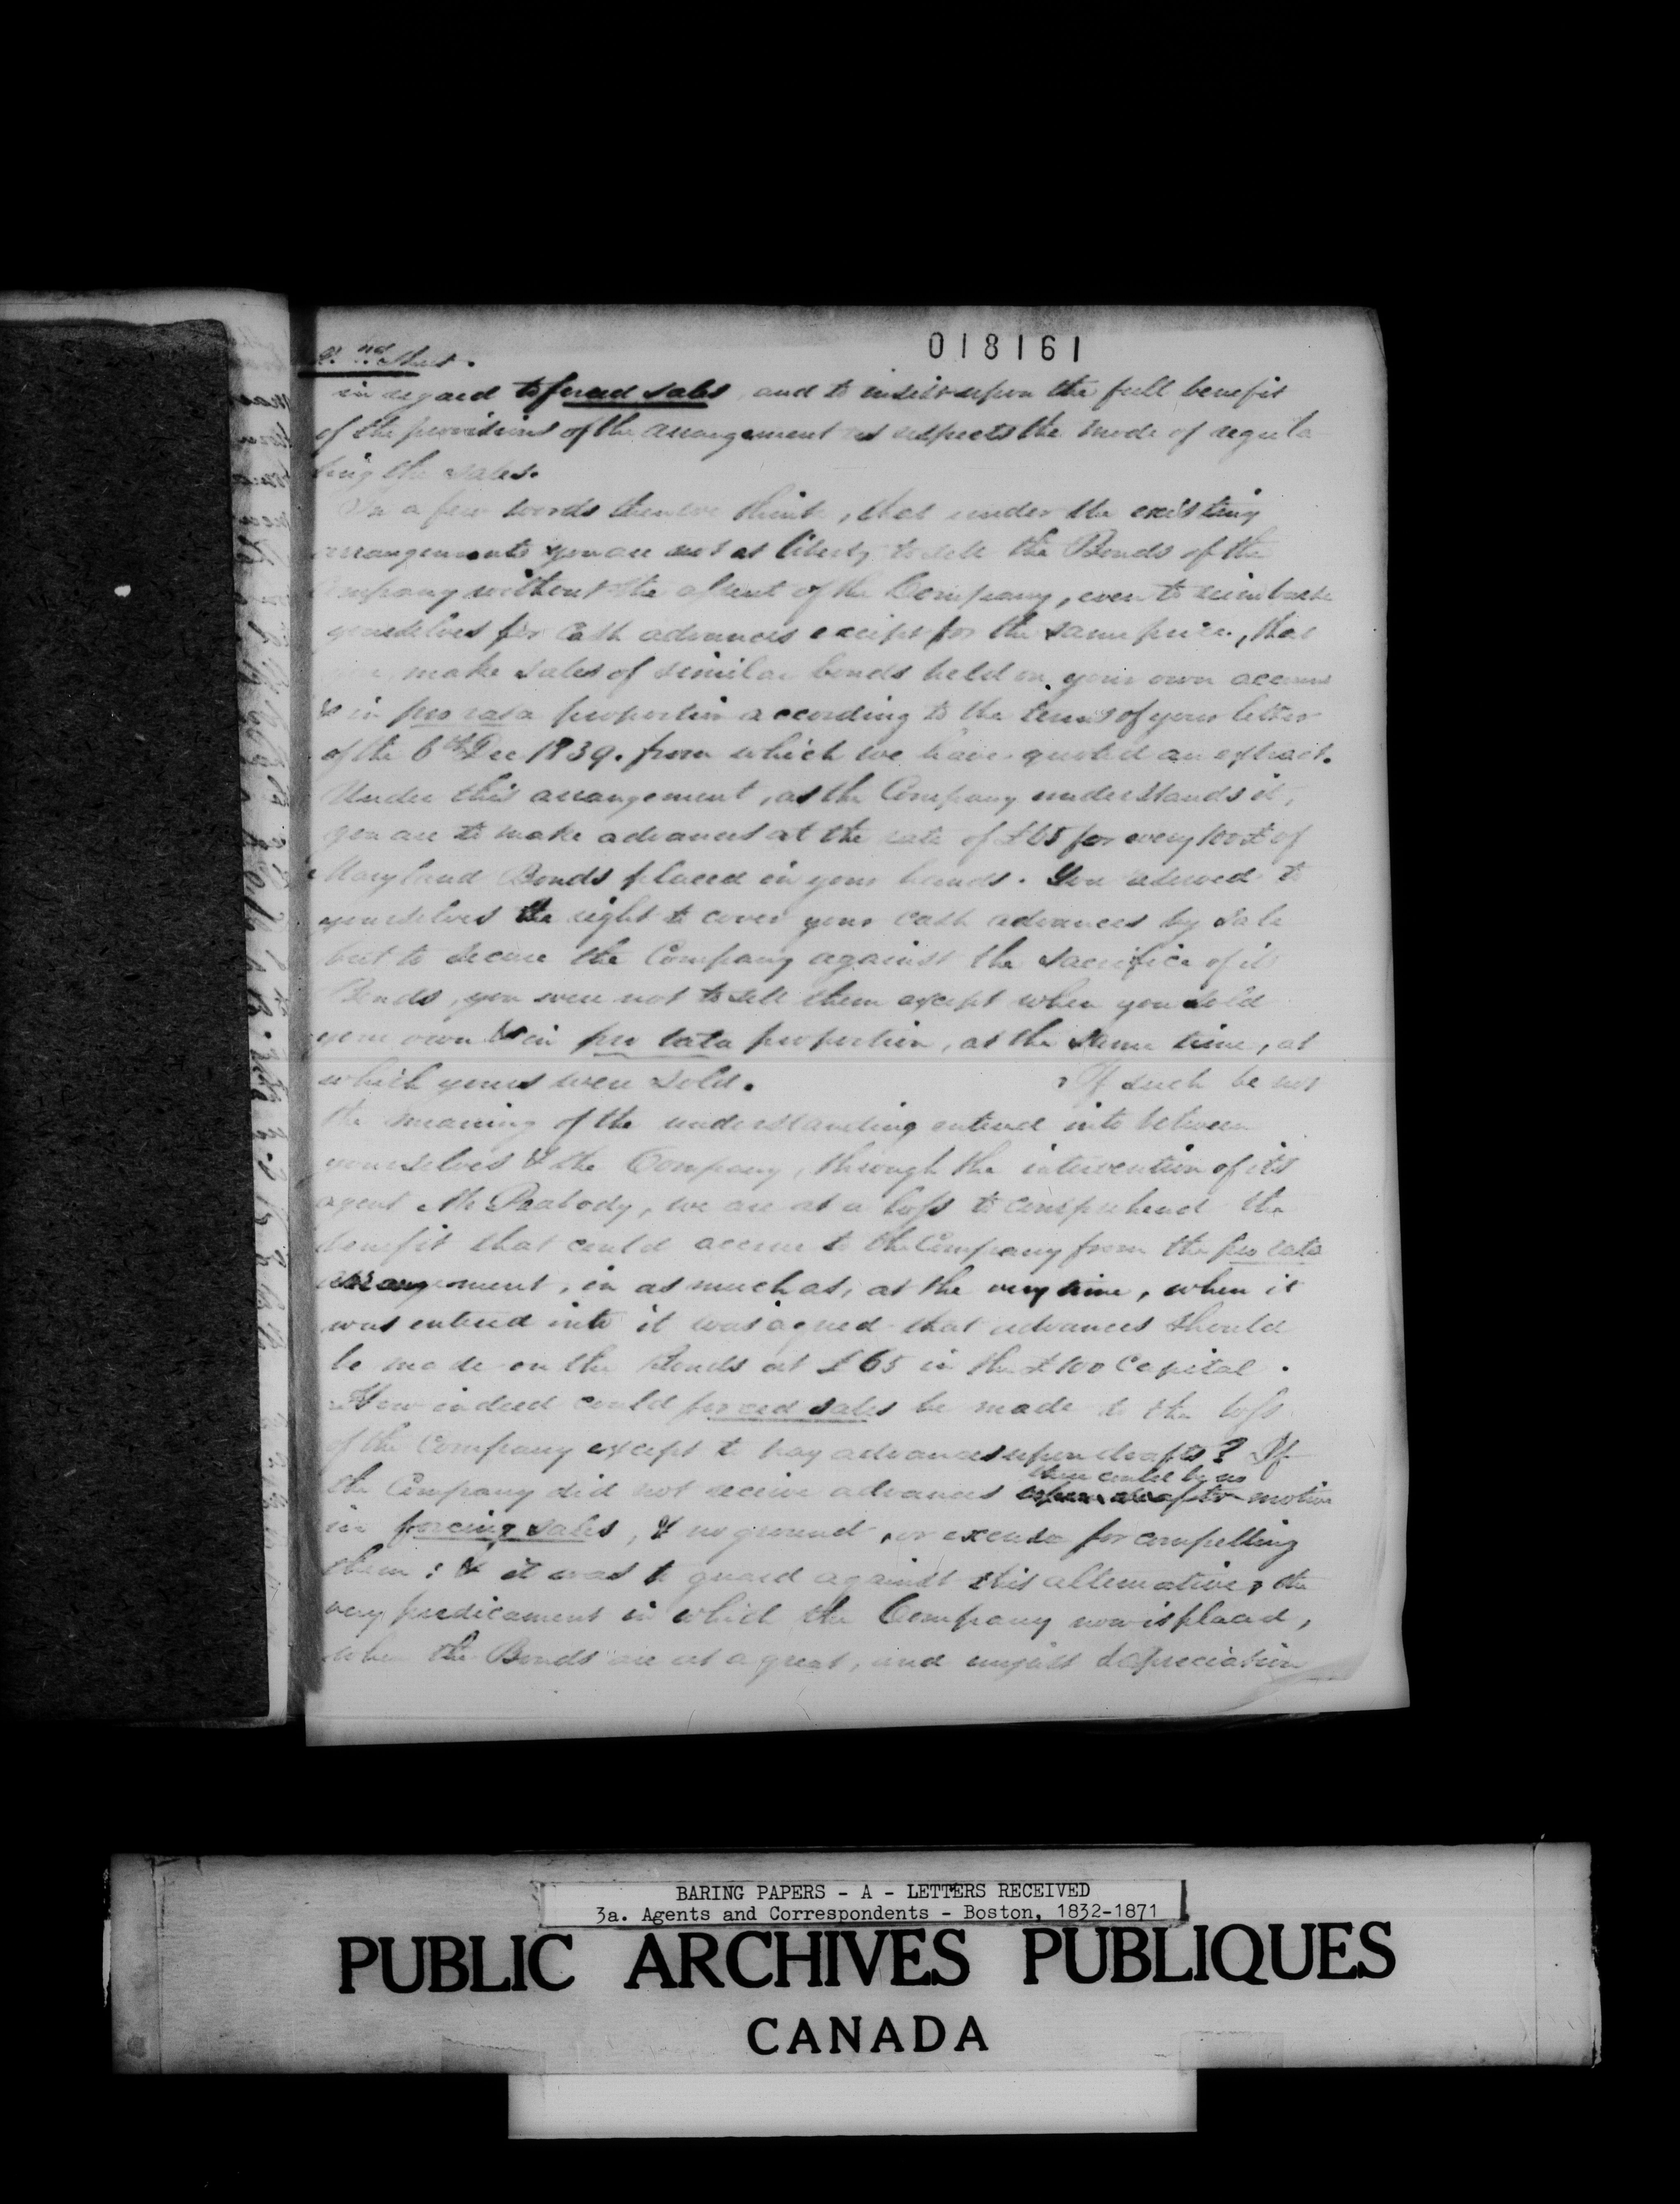 018161
2nd sheet.
in regard to forced sales, and to insist upon the full benefit
of the provisions of the arrangement as respects the mode of regula
ting the sales.
In a few words then we think, that under the existing
arrangements you are not at liberty to sell the Bonds of the
Company without the assent of the Company, even to reimburse
yourselves for Cash advances except for the same price, that
you make sales of similar bonds held on your own account
& in pro rata proportion according to the terms of your letter
of the 6th Dec 1839. from which we have quoted an extract.
Under this arrangement, as the Company understands it,
you are to make advances at the rate of £65 for every 100£ of
Maryland Bonds placed in your hands. You reserved to
yourselves the right to cover your cash advances by sale
but to secure the Company against the sacrifice of its
Bonds, you were not to sell them except when you sold
your own & in pro rata proportion, at the same time, at
which yours were sold. If such be not
the meaning of the understanding entered into between
yourselves & the Company, through the intervention of its
agent Mr Peabody, we are at a loss to comprehend the
benefit that could accrue to the Company from the pro rata
arrangement, in as much as, at the very time, when it
was entered into it was agreed that advances should
be made on the Bonds at £65 in the £100 Capital.
How indeed could forced sales be made to the loss
of the Company except to pay advances upon drafts? If
there could be no
the Company did not receive advances upon drafts motive
in forcing sales, & no ground, or excuse for compelling
them: & it was to guard against this alternative, the
very predicament in which the Company now is placed,
when the Bonds are at a great, and unjust depreciation
BARING PAPERS - A - LETTERS RECEIVED
3a. Agents and Correspondents - Boston, 1832-1871
PUBLIC ARCHIVES PUBLIQUES
CANADA